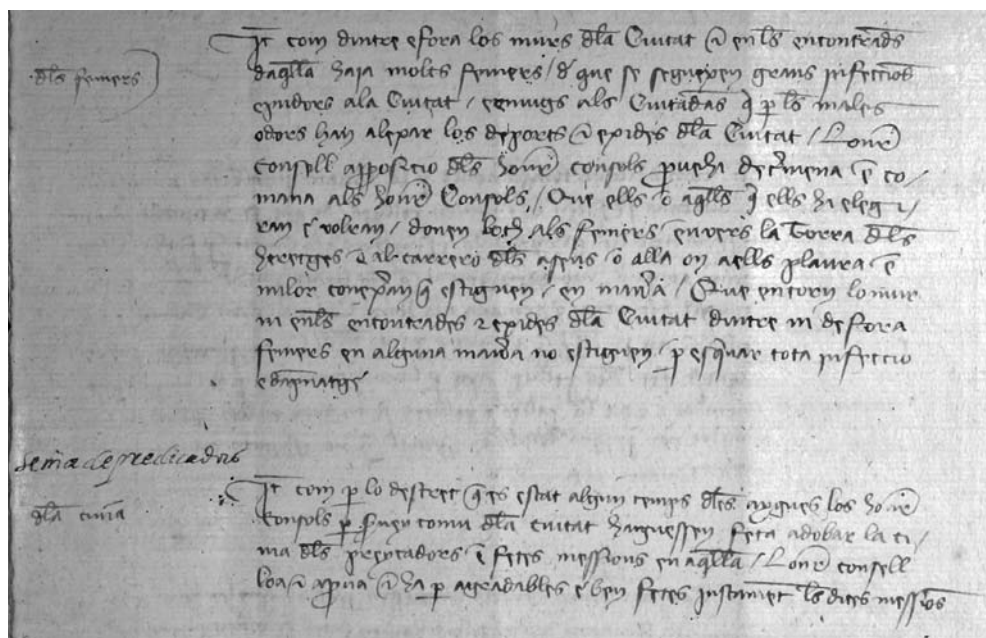 dls femers
It com dintre e fora los murs dla Ciutat ⁊ en ls encontrads
daqlla haja molts femers / d que se seguexen grans infeccios
e pudors a la Ciutat / e enuigs als Ciutadas q p ls males
odors han alexar los deports ⁊ exides dla Ciutat / Lonr
Consell a pposicio dls honr consols puehi detmena e co/
mana als honr Consols / Que ells o aqlls q ells hi elegi/
ran e volran / donen loch als femers enuers la Torra dls
heretges o al carrero dls asens o alla on a ells plaura e
milor conexan q estiguen / en mana / Que entorn lo mur
ni en ls encontrades ⁊ exides dla Ciutat dintre ni defora
femers en alguna mana no estiguen p esquar tota infeccio
e dapnatge
sema de predicadors
dla cima
It com p lo destret q es estat algun temps dles aygues los honr
Consols p comu dla ciutat haguessen feta adobar la ci
ma dls preycadors e fetes messions en aqlla / Lonr consell
loa ⁊ apua ⁊ ha p agradables e ben fetes ls dites messios